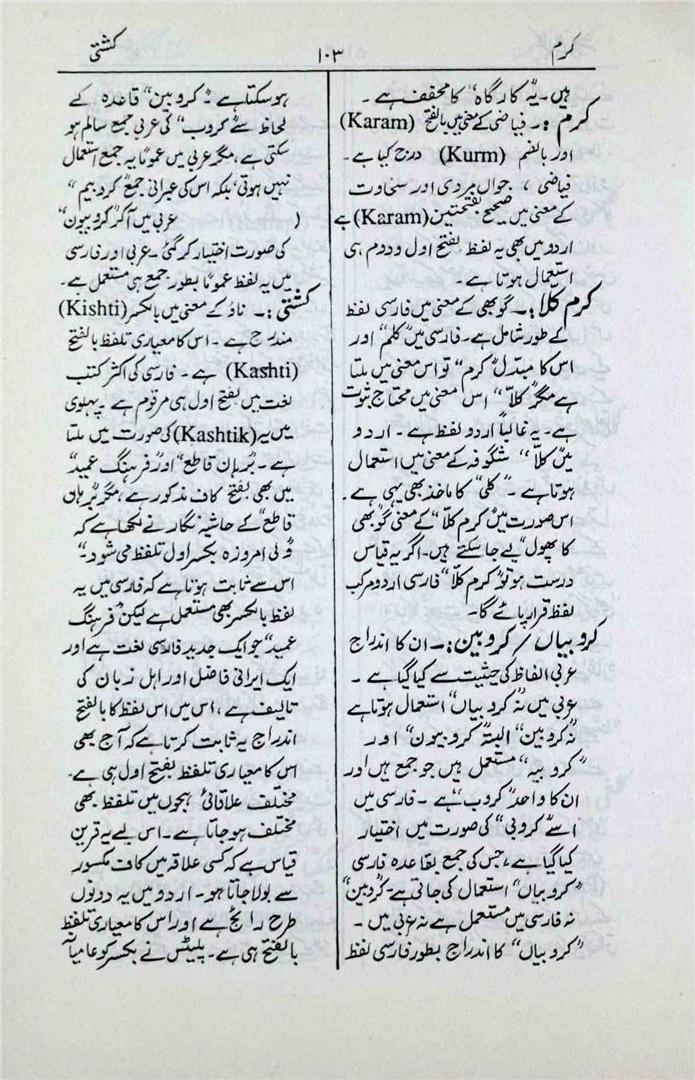 کرم
۱۰۳
کشتی
ہیں۔ یہ "کارگاہ" کا مخفف ہے۔
کرم :۔ فیاضی کے معنی میں بالفتح (Karam)
اور بالضم (Kurm) درج کیا ہے۔
فیاضی، جواں مردی اور سخاوت
کے معنی میں صحیح بفتحتین (Karam) ہے
اردو میں بھی یہ لفظ بفتح اول و دوم ہی
استعمال ہوتا ہے۔
کرم کلّا :۔ گوبھی کے معنی میں فارسی لفظ
کے طور شامل ہے۔ فارسی میں "کلم" اور
اس کا مبدل "کرم" تو اس معنی میں ملتا
ہے مگر "کلّا" اس معنی میں محتاج ثبوت
ہے۔ یہ غالباً اردو لفظ ہے۔ اردو
میں "کلّا" شگوفہ کے معنی میں استعمال
ہوتا ہے۔ "کلی" کا ماخذ بھی یہی ہے۔
اس صورت میں "کرم کلّا" کے معنی "گوبھی
کا پھول" لیے جا سکتے ہیں۔ اگر یہ قیاس
درست ہو تو "کرم کلّا" فارسی اردو مرکب
لفظ قرار پائے گا۔
کروبیاں / کروبین :۔ ان کا اندراج
عربی الفاظ کی حیثیت سے کیا گیا ہے۔
عربی میں نہ "کروبیاں" استعمال ہوتا ہے
نہ "کروبین" البتہ "کروبیون" اور
"کروبیہ" مستعمل ہیں جو جمع ہیں اور
ان کا واحد "کروب" ہے۔ فارسی میں
اسے "کروبی" کی صورت میں اختیار
کیا گیا ہے، جس کی جمع بقاعدہ فارسی
"کروبیاں" استعمال کی جاتی ہے۔ "کروبین"
نہ فارسی میں مستعمل ہے نہ عربی میں۔
"کروبیاں" کا اندراج بطور فارسی لفظ
ہو سکتا ہے۔ "کروبین" قاعدہ کے
لحاظ سے "کروب" کی عربی جمع سالم ہو
سکتی ہے، مگر عربی میں عموماً یہ جمع استعمال
نہیں ہوتی بلکہ اس کی عبرانی جمع "کردبیم"
( عربی میں آکر "کروبیون"
کی صورت اختیار کر گئی۔ عربی اور فارسی
میں یہ لفظ عموماً بطور جمع ہی مستعمل ہے۔
کشتی :۔ ناؤ کے معنی میں بالکسر (Kishti)
مندرج ہے۔ اس کا معیاری تلفظ بالفتح
(Kashti) ہے۔ فارسی کی اکثر کتب
لغت میں بفتح اول ہی مرقوم ہے۔ پہلوی
میں یہ (Kashtik) کی صورت میں ملتا
ہے۔ "برہان قاطع" اور "فرہنگ عمید"
میں بھی بفتح کاف مذکور ہے، مگر "برہان
قاطع" کے حاشیہ نگار نے لکھا ہے کہ
"ولی امروزہ بکسر اول تلفظ می شود"
اس سے ثابت ہوتا ہے کہ فارسی میں یہ
لفظ بالکسر بھی مستعمل ہے لیکن "فرہنگ
عمید" جو ایک جدید فارسی لغت ہے اور
ایک ایرانی فاضل اور اہل زبان کی
تالیف ہے، اس میں اس لفظ کا بالفتح
اندراج یہ ثابت کرتا ہے کہ آج بھی
اس کا معیاری تلفظ بفتح اول ہی ہے۔
مختلف علاقائی لہجوں میں تلفظ بھی
مختلف ہو جاتا ہے۔ اس لیے یہ قرین
قیاس ہے کہ کسی علاقہ میں کاف مکسور
سے بولا جاتا ہو۔ اردو میں یہ دونوں
طرح رائج ہے اور اس کا معیاری تلفظ
بالفتح ہی ہے۔ پلیٹس نے بکسر کو عامیانہ